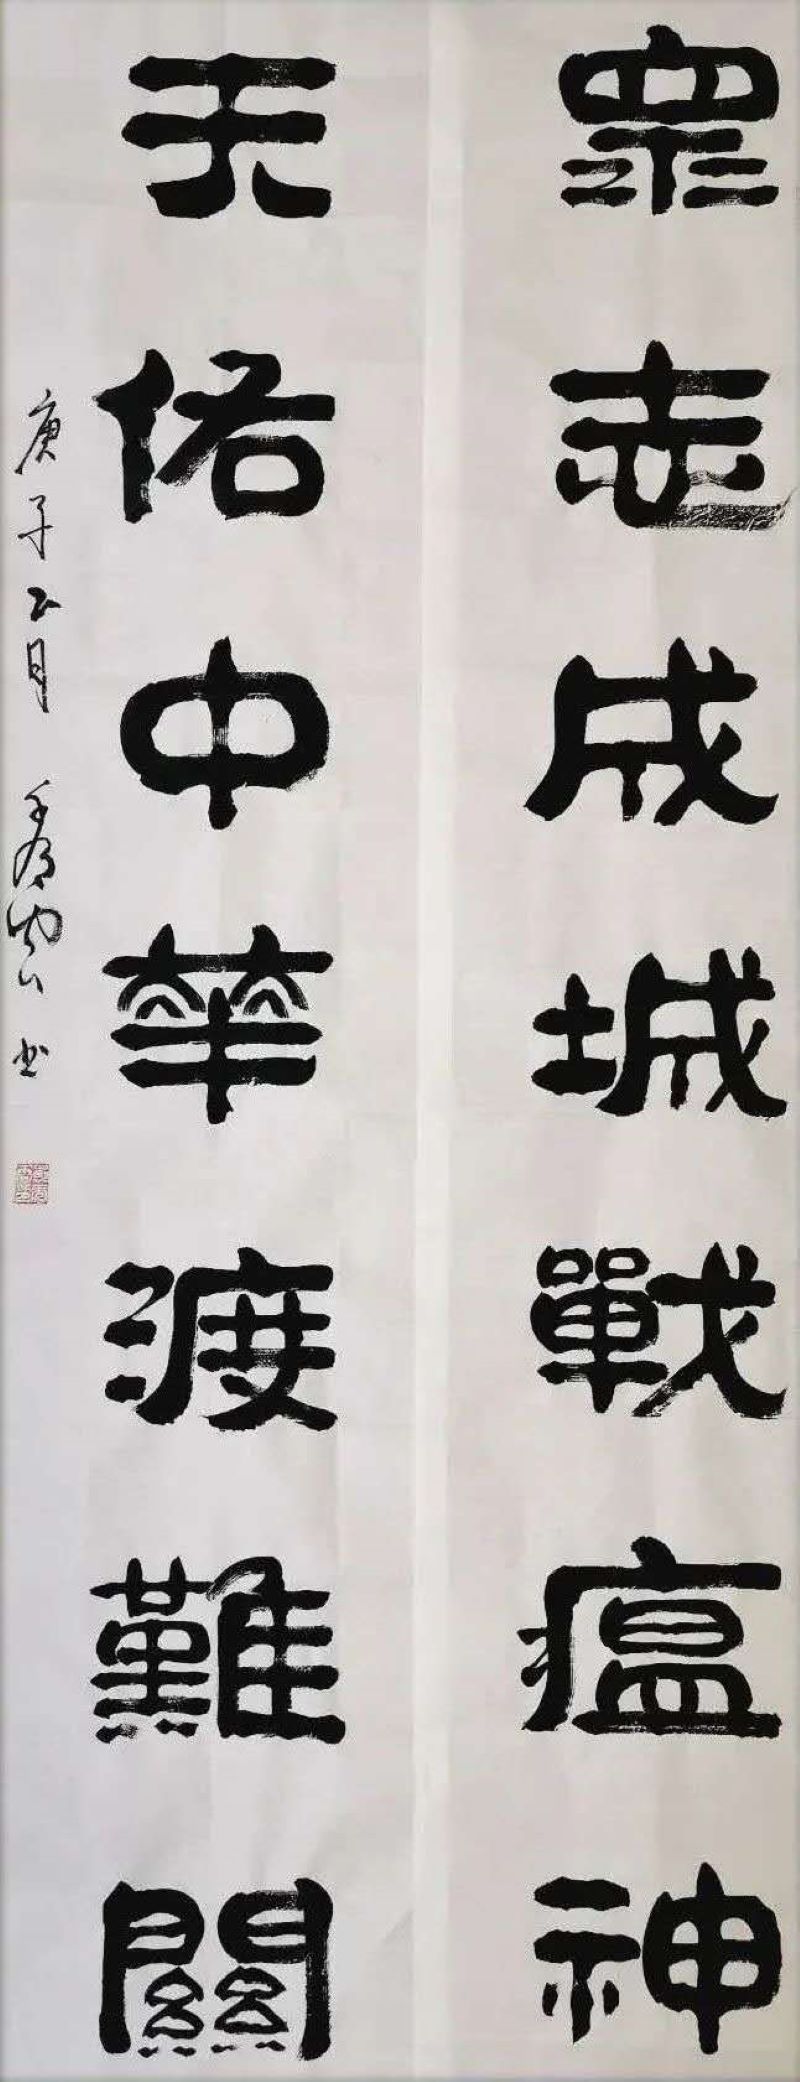 眾志成城戰瘟神
天佑中華渡難關
庚子正月
書